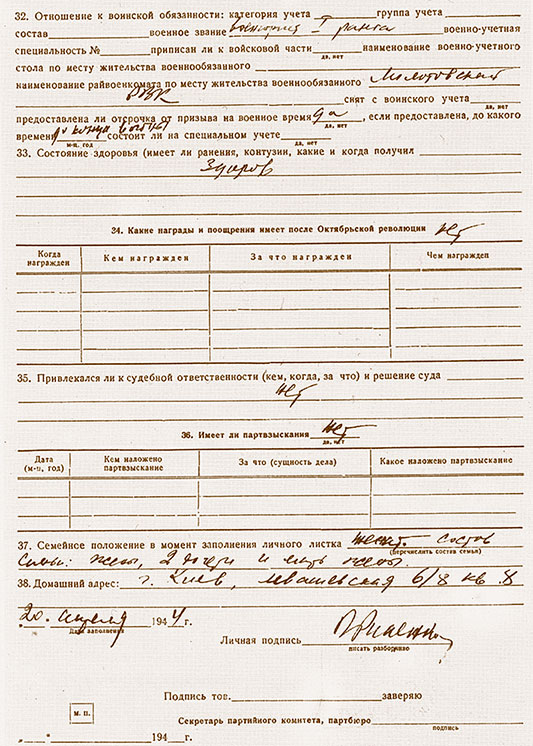 32. Отношение к воинской обязанности: категория учета группа учета
состав военное звание военюрист I ранга военно-учетная
специальность № приписан ли к войсковой части наименование военно-учетного
да, нет
стола по месту жительства военнообязанного
наименование райвоенкомата по месту жительства военнообязанного Молотовский
РВК снят с воинского учета
да, нет
предоставлена ли отсрочка от призыва на военное время да, если предоставлена, до какого
да, нет
времени до конца войны состоит ли на специальном учете
м-ц, год да, нет
33. Состояние здоровья (имеет ли ранения, контузии, какие и когда получил
Здоров
34. Какие награды и поощрения имеет после Октябрьской революции нет
Когда награжден Кем награжден За что награжден Чем награжден
35. Привлекался ли к судебной ответственности (кем, когда, за что) и решение суда
нет
36. Имеет ли партвзыскания нет
да, нет
Дата (м-ц, год) Кем наложено партвзыскание За что (сущность дела) Какое наложено партвзыскание
37. Семейное положение в момент заполнения личного листка женат. состав
(перечислить состав семьи)
семьи: жена, 2 дочери и мать жены.
38. Домашний адрес: г. Киев, Левашевская 6/8 кв. 8
20. апреля 1944 г.
Дата заполнения
Личная подпись
писать разборчиво
Подпись тов. заверяю
М. П.
Секретарь партийного комитета, партбюро
подпись
" " 194 г.